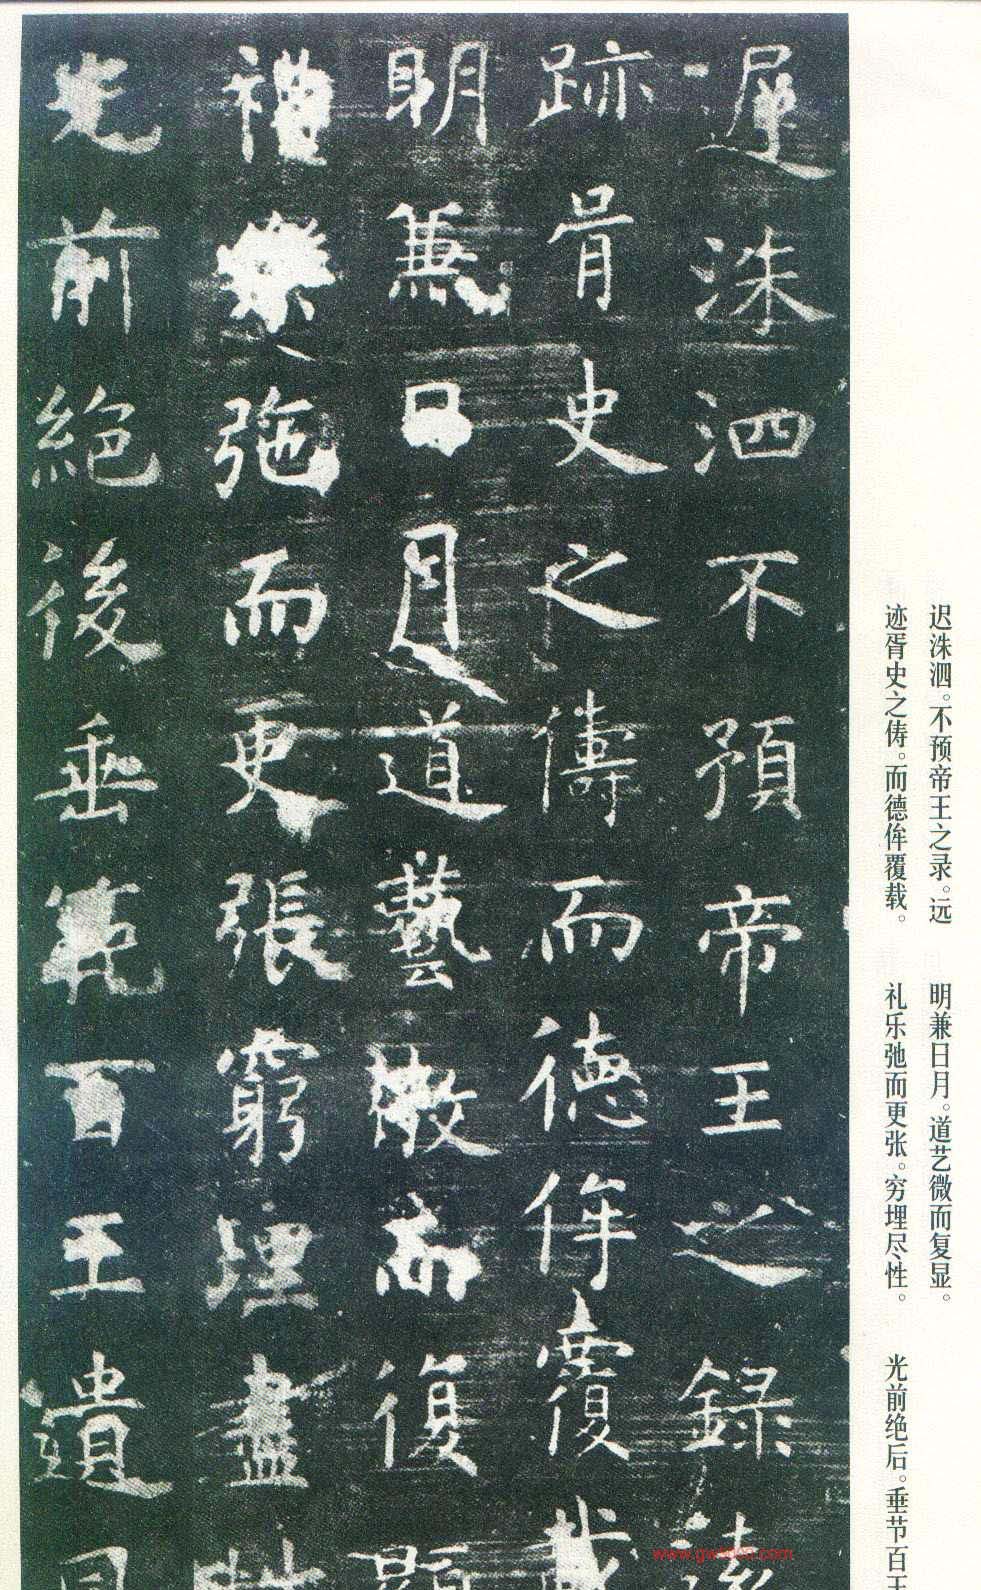 遟洙泗不預帝王之錄遠
跡胥史之儔而德侔覆載
明兼日月道藝微而復顯
禮樂弛而更張窮理盡性
光前絕後垂範百王遺風
迟洙泗。不预帝王之录。远
迹胥史之俦。而德侔覆载。
明兼日月。道艺微而复显。
礼乐弛而更张。穷埋尽性。
光前绝后。垂节百王